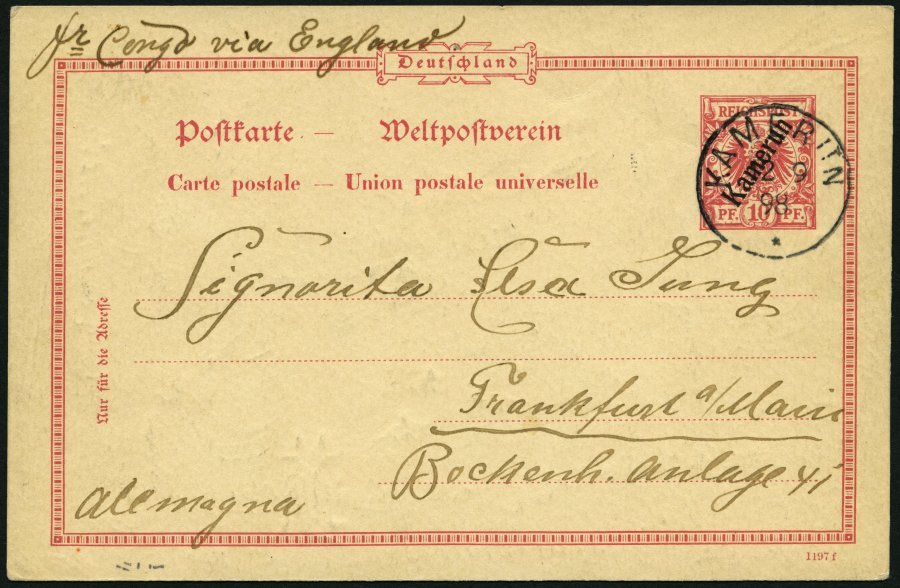 pr Congo via England
Deutschland
Postkarte — Weltpostverein
Carte postale — Union postale universelle
REICHSPOST
Kamerun
10
PF. PF.
KAMERUN
9
98
*
Signorita Elsa Jung
Frankfurt a/Main
Bockenh. Anlage
Alemagna
Nur für die Adresse
1197 f